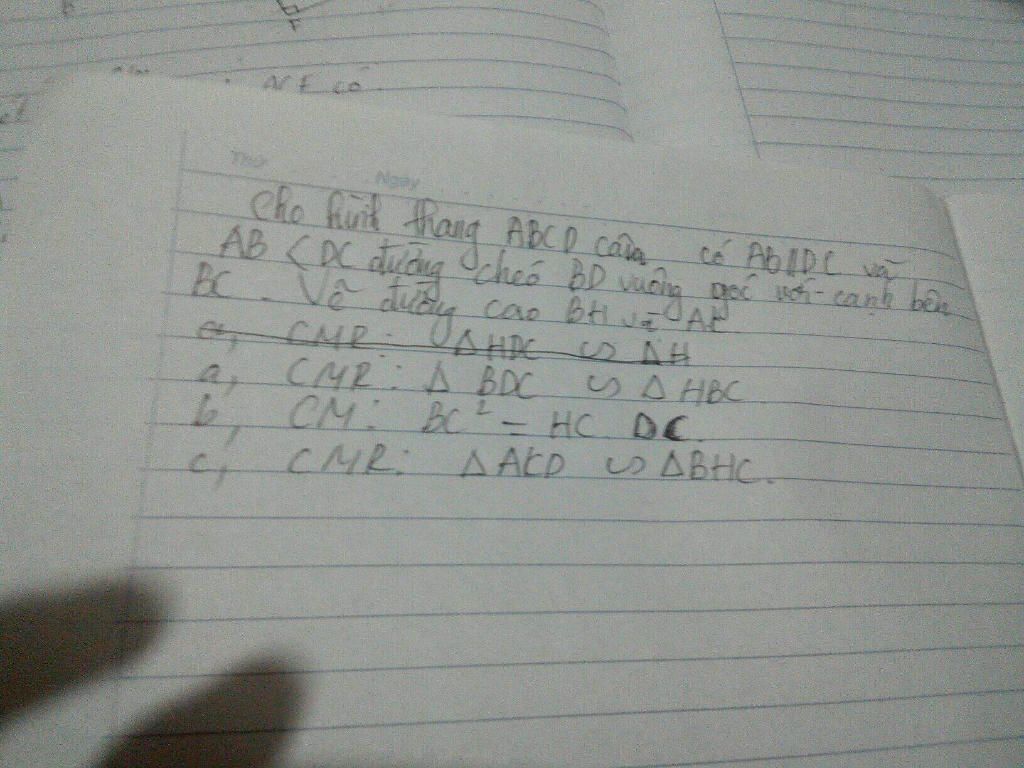 AKE có
Thứ
Ngày
Cho hình thang ABCD cân có AB//DC và
AB < DC đường chéo BD vuông góc với cạnh bên
BC. Vẽ đường cao BH và AK
a, CMR: △HDC ∽ △H
a, CMR: △ BDC ∽ △ HBC
b, CM: BC² = HC DC.
c, CMR: △AKD ∽ △BHC.